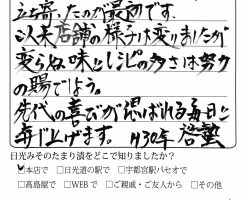 立ち寄ったのが最初です.
以来店舗の様子は変りましたが
変らぬ味とレシピの多さは努力
の賜でしよう。
先代の喜びが偲ばれる毎日と
申し上げます。 H30年 啓蟄
日光みそのたまり漬をどこで知りましたか？
☑本店で □日光道の駅で □宇都宮駅パセオで
□高島屋で □WEBで □ご親戚・ご友人から □その他